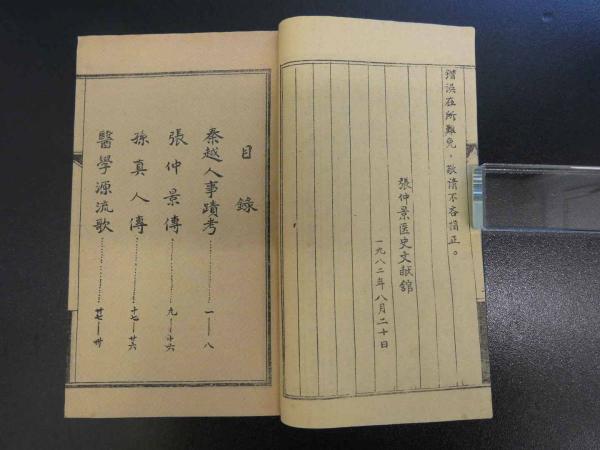 錯误在所難免，敬請不吝指正。
張仲景医史文献館
一九八二年八月二十日
目錄
秦越人事蹟考……一—八
張仲景傳……九—十六
孫真人傳……十七—廿六
醫學源流歌……廿七—卅